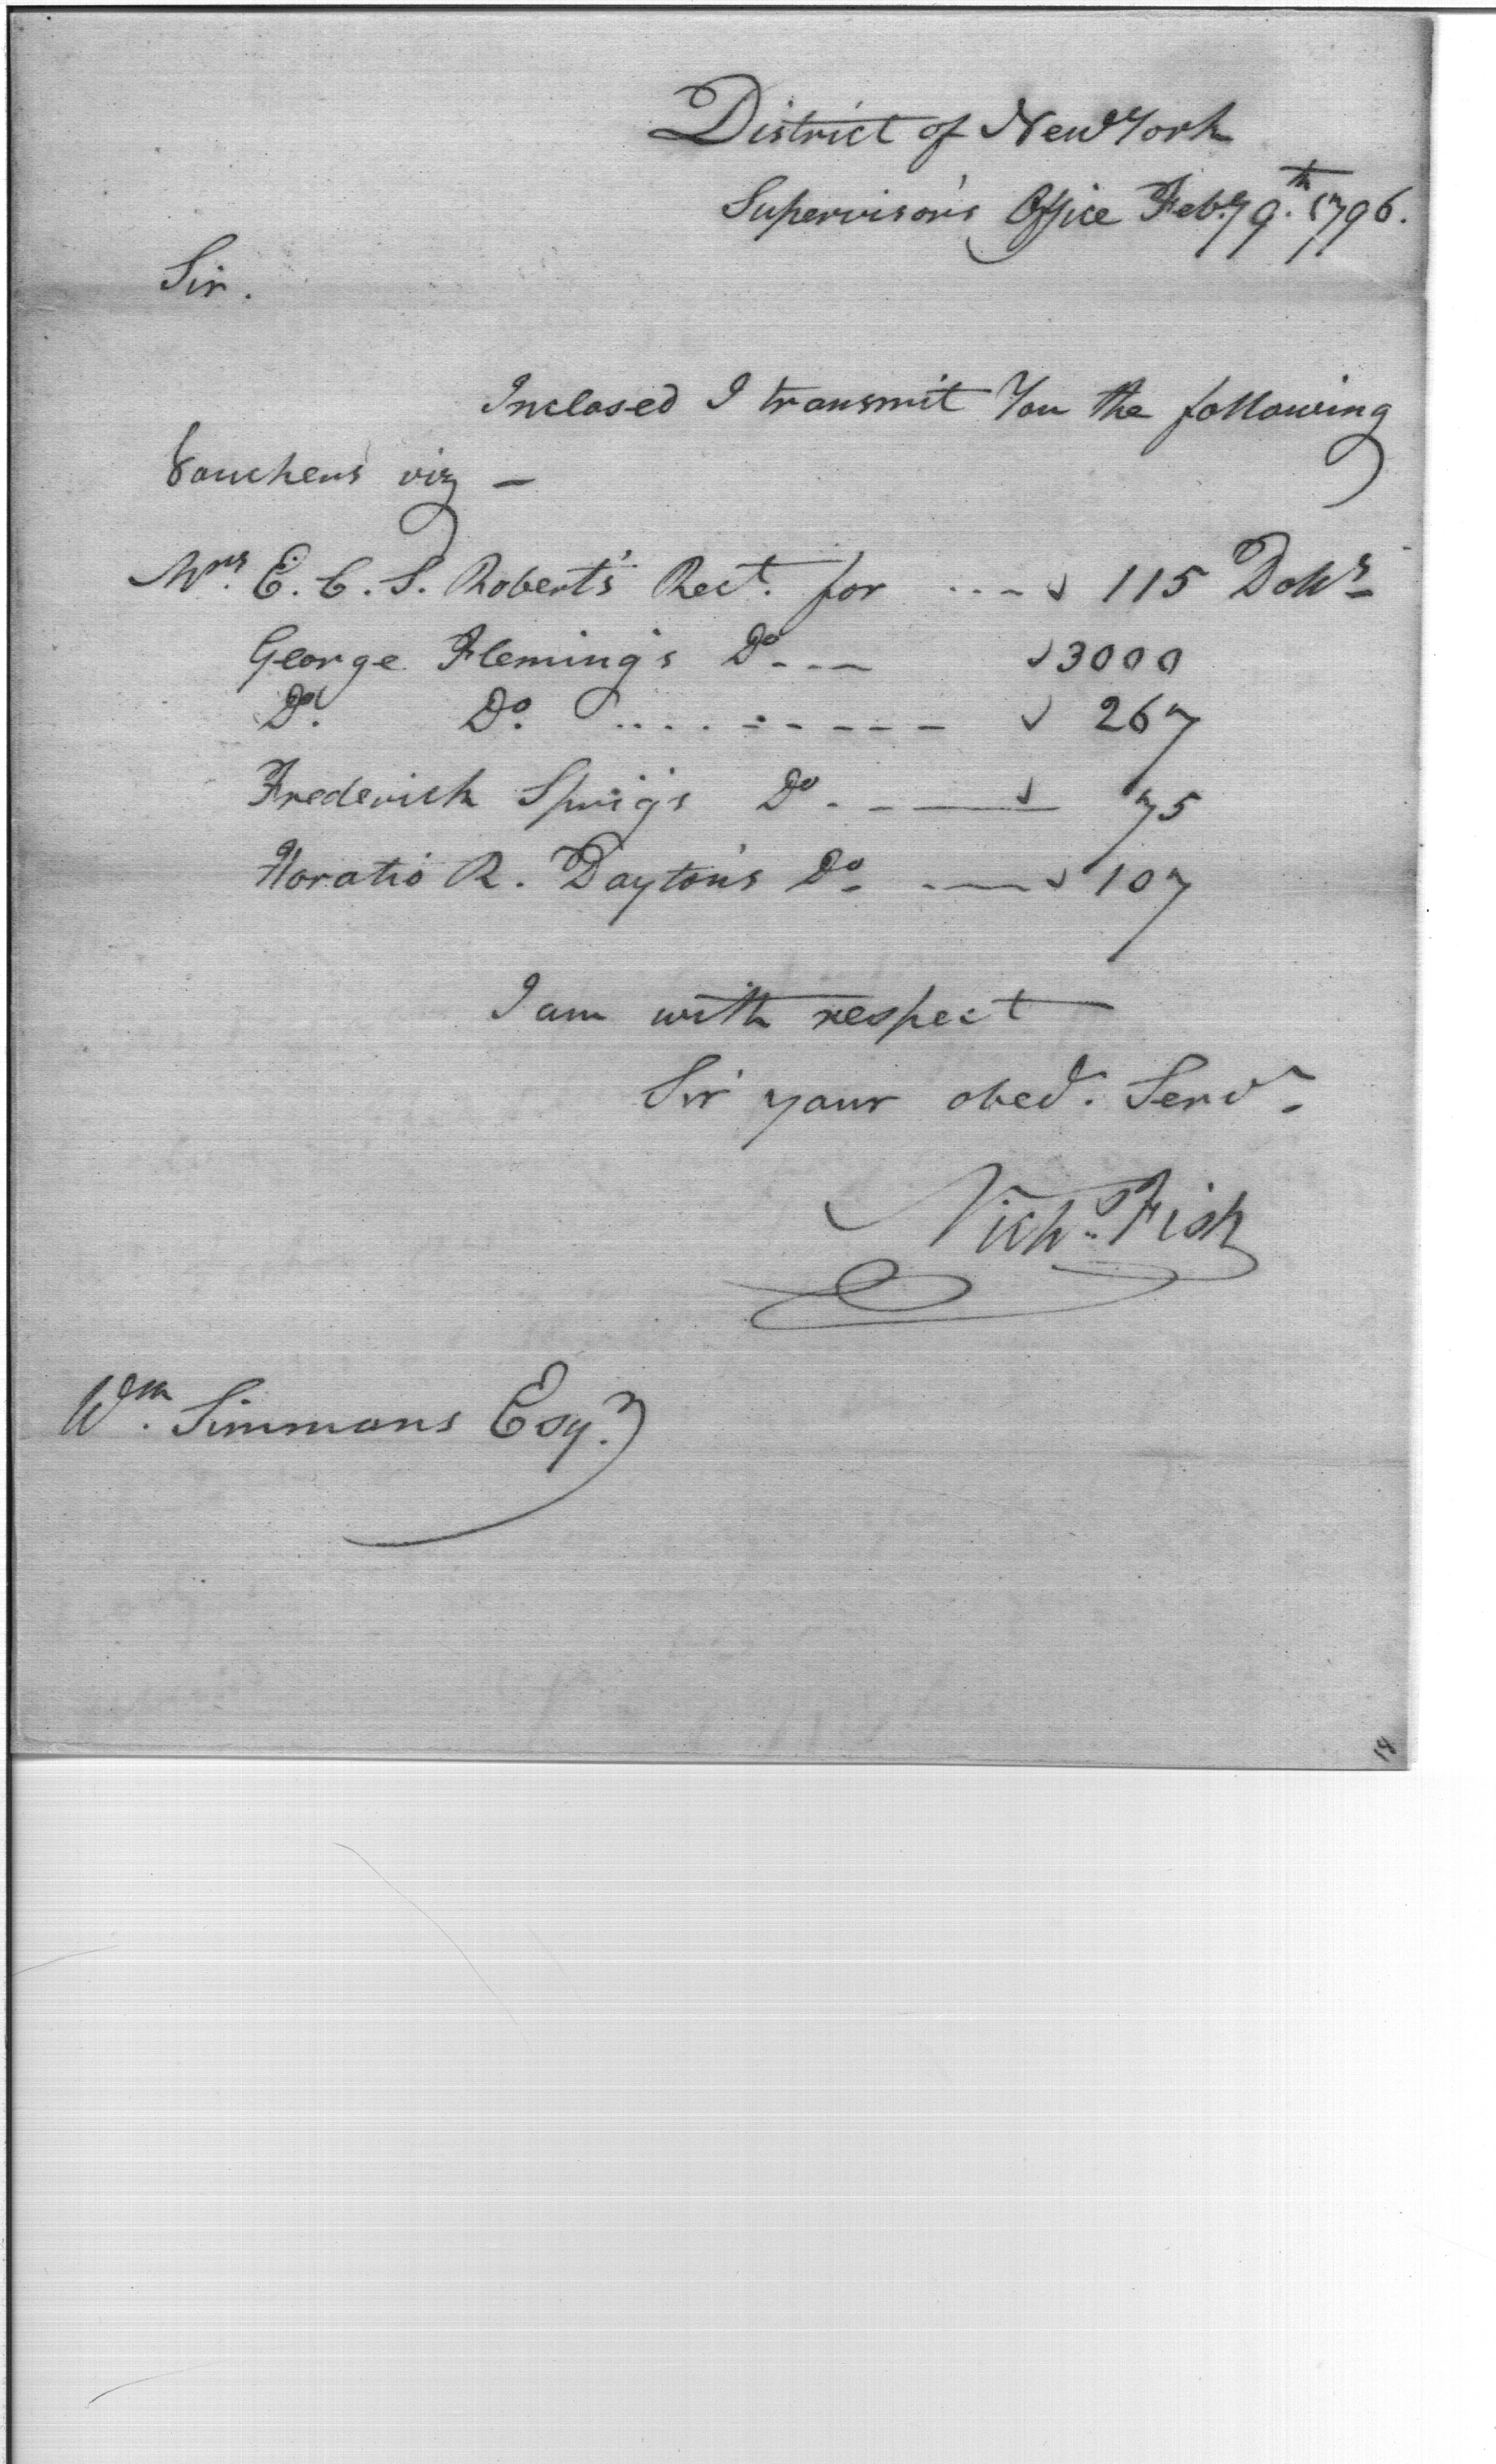 District of New York
Supervisor's Office Feby. 9th. 1796.
Sir.
Inclosed I transmit You the following
Vouchers viz –
Mrs. E. C. S. Robert's Rect. for ---- ✓ 115 Dolls
George Fleming's Do. -- ✓ 3000
Do. Do. .... ----- ✓ 267
Frederick Sprig's Do. -- ✓ 75
Horatio R. Dayton's Do. -- ✓ 107
I am with respect
Sir your obed. Servt.
Nichs. Fish
Wm. Simmons Esqr.
18